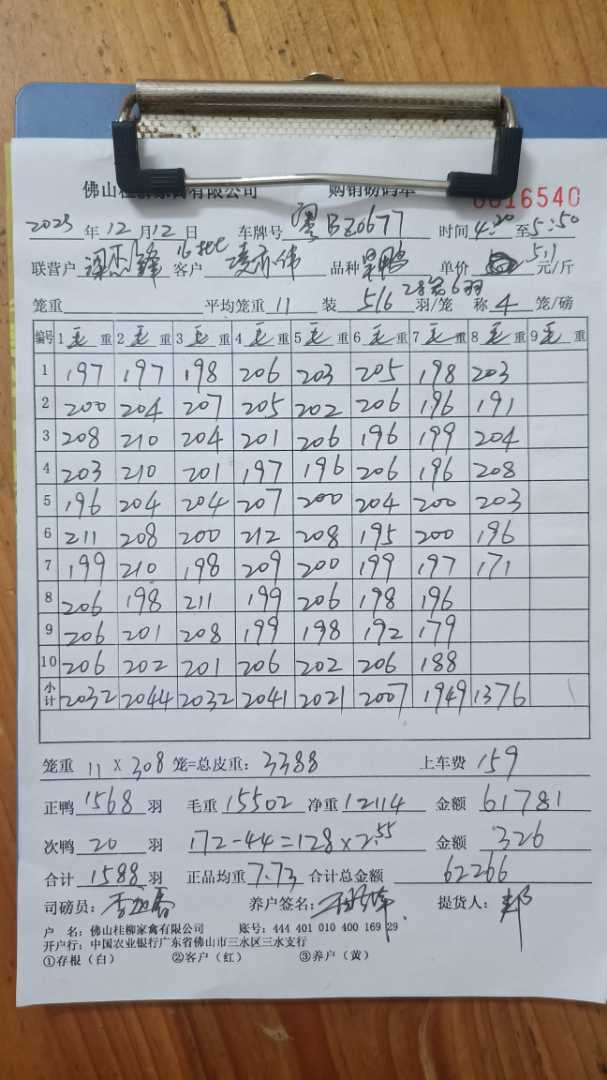 佛山桂柳家禽有限公司 购销磅码单 0016540
2023年12月12日 车牌号 粤BZ0677 时间4:20至5:50
联营户 梁杰锋 客户 品种 鸭 单价 5.1元/斤
笼重 平均笼重 11 装 5/6 羽/笼 称 4 笼/磅
编号 1毛重 2毛重 3毛重 4毛重 5毛重 6毛重 7毛重 8毛重 9毛重
1 197 197 198 206 203 205 198 203
2 200 204 207 205 202 206 196 191
3 208 210 204 201 206 196 199 204
4 203 210 201 197 196 206 196 208
5 196 204 204 207 200 204 200 203
6 211 208 200 212 208 195 200 196
7 199 210 198 209 200 199 197 171
8 206 198 211 199 206 198 196
9 206 201 208 199 198 192 179
10 206 202 201 206 202 206 188
小计 2032 2044 2032 2041 2021 2007 1949 1376
笼重 11 X 308 笼=总皮重: 3388 上车费 159
正鸭 1568 羽 毛重 15502 净重 12114 金额 61781
次鸭 20 羽 172-44=128×2.55 金额 326
合计 1588 羽 正品均重 7.73 合计总金额 62266
司磅员: 养户签名: 提货人:
户 名: 佛山桂柳家禽有限公司 账号: 444 401 010 400 169 29
开户行: 中国农业银行广东省佛山市三水区三水支行
①存根(白) ②客户(红) ③养户(黄)